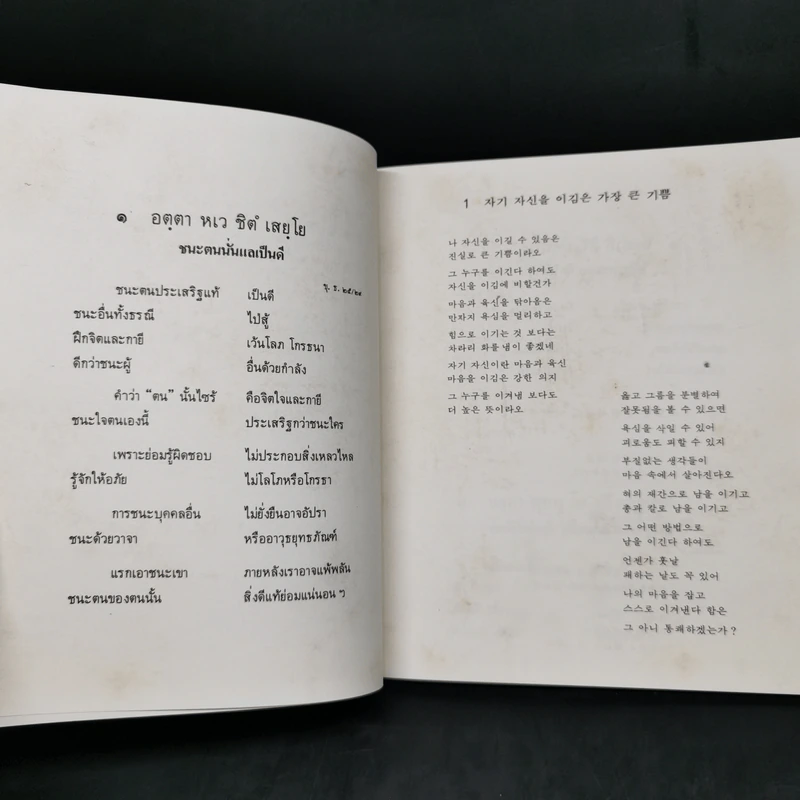 ๑ อตฺตา หเว ชิตํ เสยฺโย
ชนะตนนั่นแลเป็นดี
ขุ. ธ. ๒๕/๒๙
ชนะตนประเสริฐแท้ เป็นดี
ชนะอื่นทั้งธรณี ไป่สู้
ฝึกจิตและกายี เว้นโลภ โกรธนา
ดีกว่าชนะผู้ อื่นด้วยกำลัง
คำว่า “ตน” นั้นไซร้ คือจิตใจและกายี
ชนะใจตนเองนี้ ประเสริฐกว่าชนะใคร
เพราะย่อมรู้ผิดชอบ ไม่ประกอบสิ่งเหลวไหล
รู้จักให้อภัย ไม่โลโภหรือโกรธา
การชนะบุคคลอื่น ไม่ยั่งยืนอาจอัปรา
ชนะด้วยวาจา หรืออาวุธยุทธภัณฑ์
แรกเอาชนะเขา ภายหลังเราอาจแพ้พลัน
ชนะตนของตนนั้น สิ่งดีแท้ย่อมแน่นอน ๆ
1 자기 자신을 이김은 가장 큰 기쁨
나 자신을 이길 수 있음은
진실로 큰 기쁨이라오
그 누구를 이긴다 하여도
자신을 이김에 비할건가
마음과 육신을 닦아옴은
만가지 욕심을 멀리하고
힘으로 이기는 것 보다는
차라리 화를 냄이 좋겠네
자기 자신이란 마음과 육신
마음을 이김은 강한 의지
그 누구를 이겨냄 보다도
더 높은 뜻이라오
옳고 그름을 분별하여
잘못됨을 볼 수 있으면
욕심을 삭일 수 있어
괴로움도 피할 수 있지
부질없는 생각들이
마음 속에서 살아진다오
혀의 재간으로 남을 이기고
총과 칼로 남을 이기고
그 어떤 방법으로
남을 이긴다 하여도
언젠가 훗날
패하는 날도 꼭 있어
나의 마음을 잡고
스스로 이겨낸다 함은
그 아니 통쾌하겠는가?